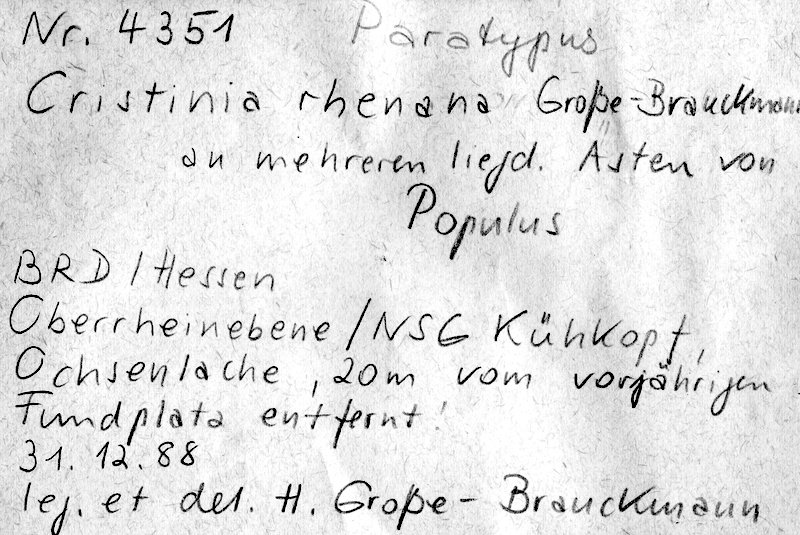 Nr. 4351 Paratypus
Cristinia rhenana Große-Brauckmann
an mehreren liegd. Ästen von
Populus
BRD / Hessen
Oberrheinebene / NSG Kühkopf,
Ochsenlache, 20m vom vorjährigen
Fundplatz entfernt!
31. 12. 88
leg. et det. H. Große-Brauckmann